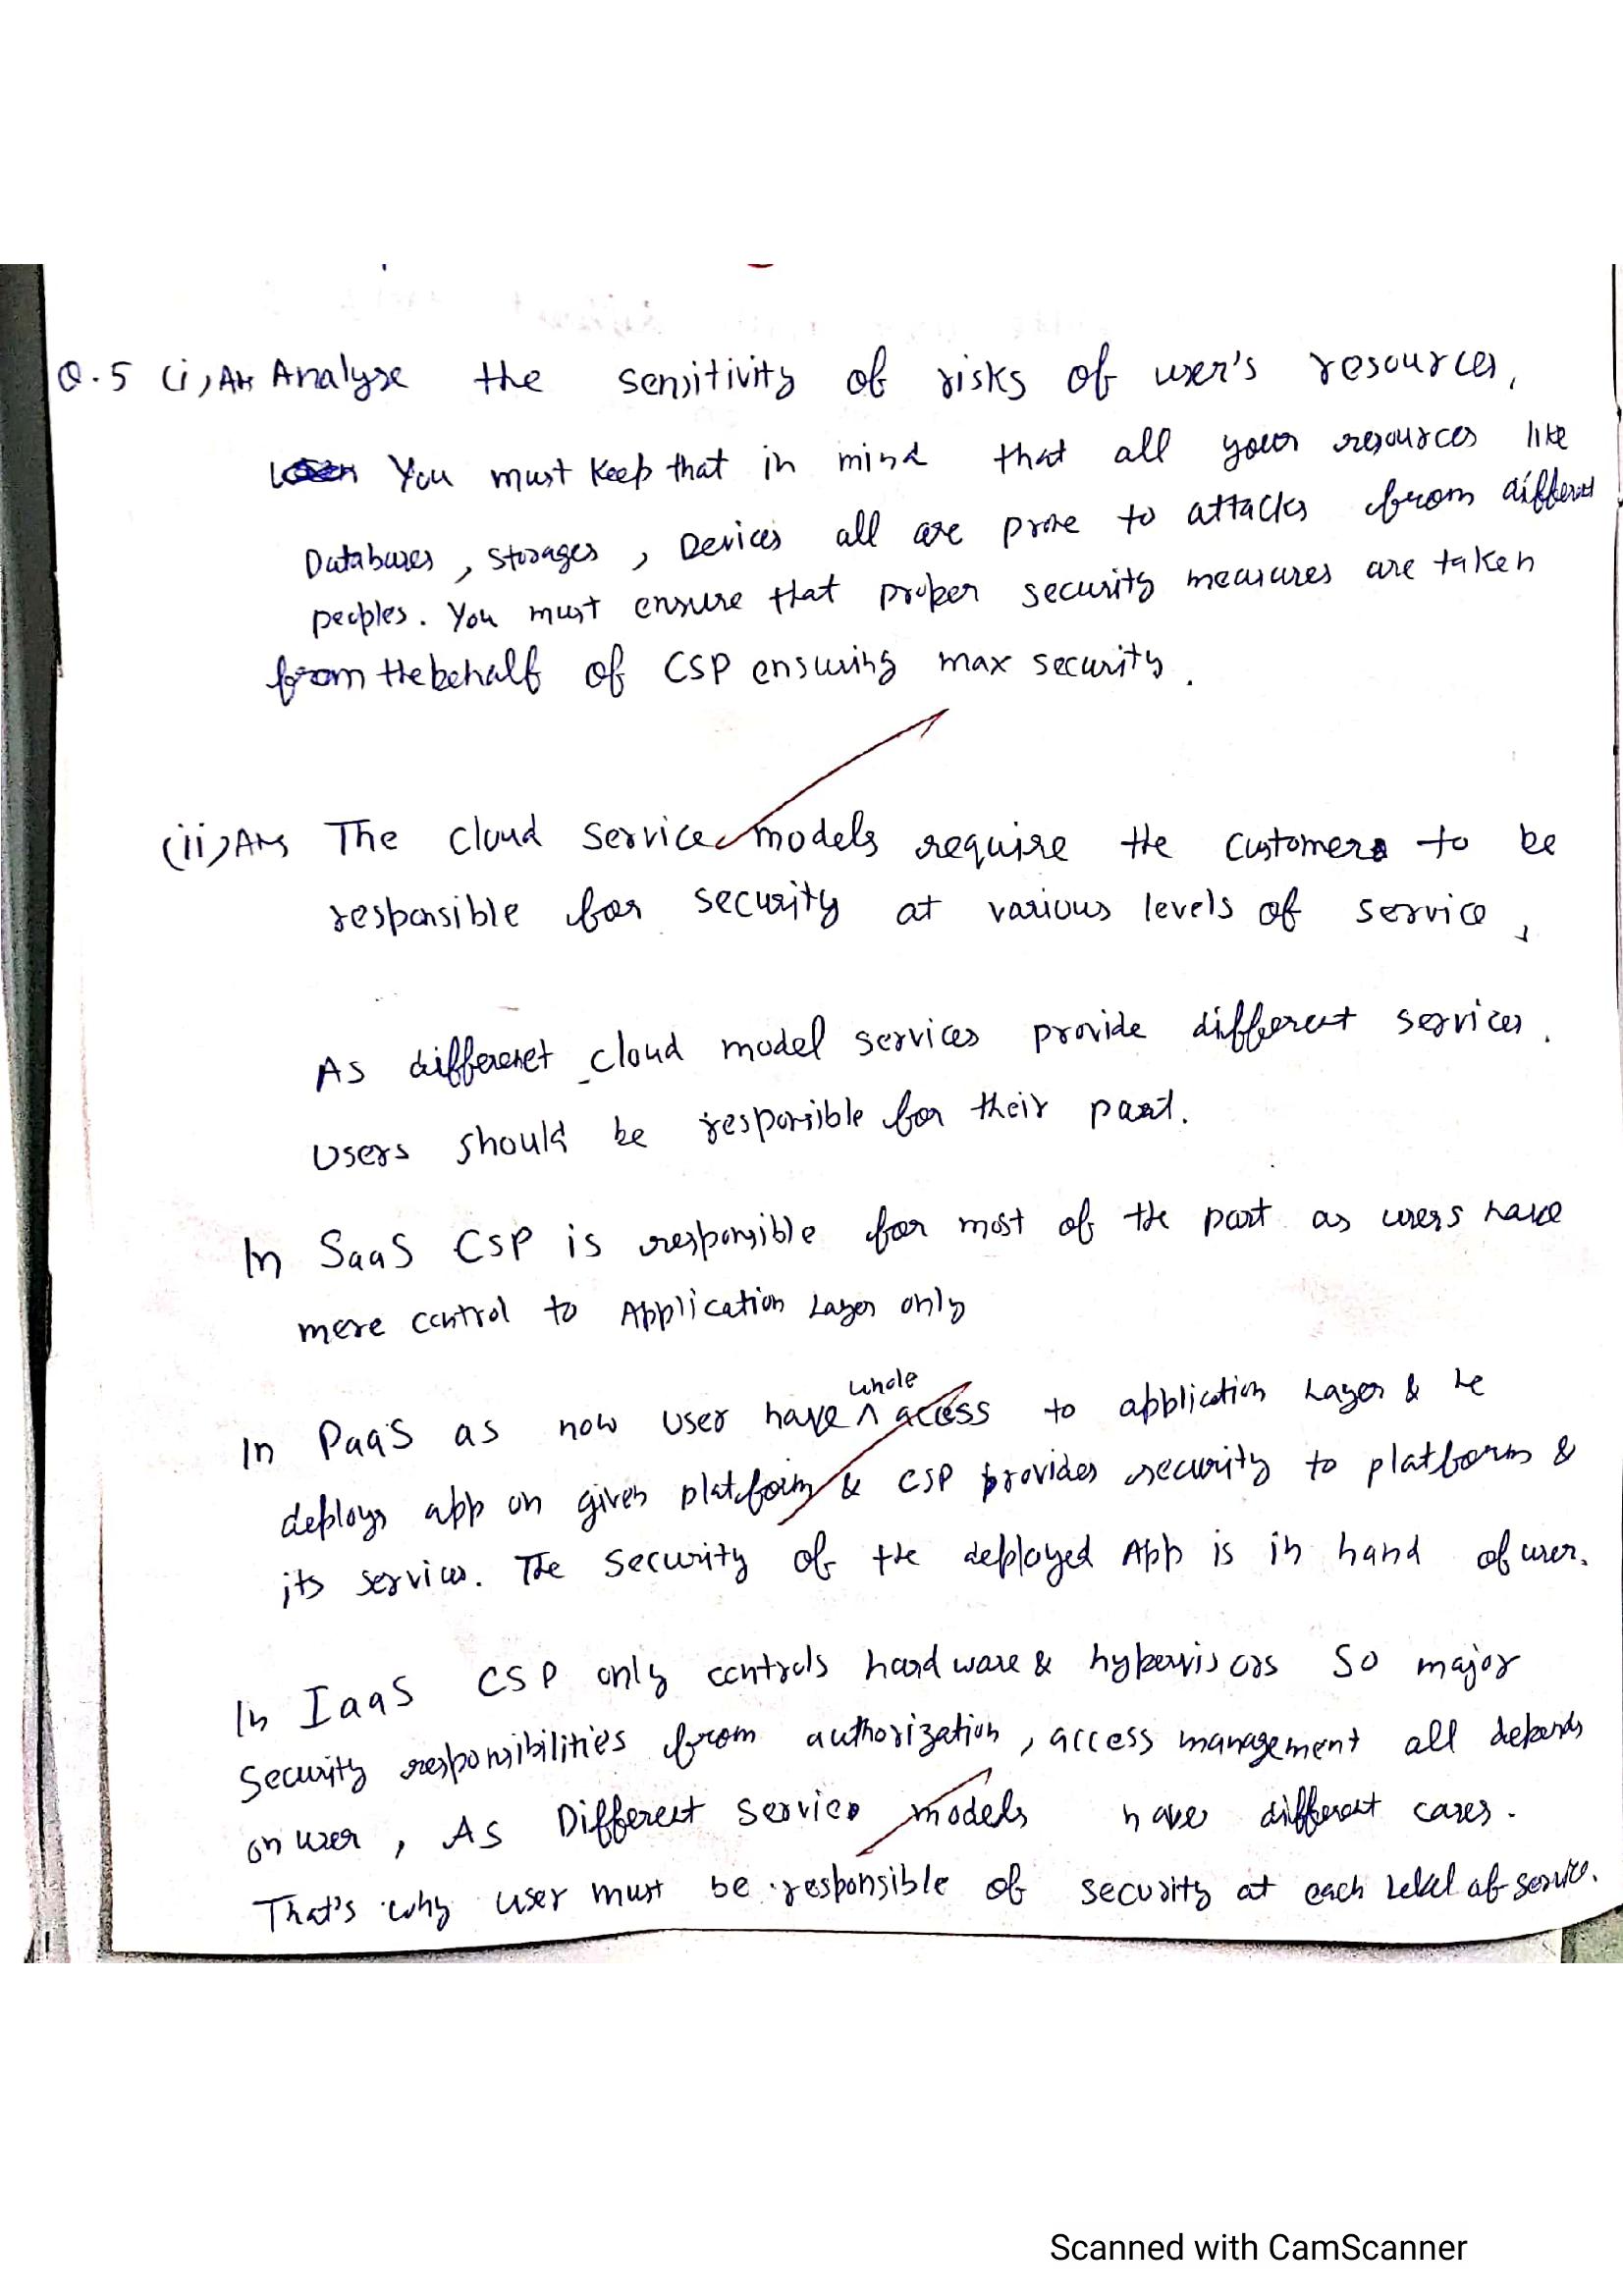 Q.5 (i) Ans Analyse the sensitivity of risks of user's resources,
You must keep that in mind that all your resources like
Databases, storages, Devices all are prone to attacks from different
peoples. You must ensure that proper security measures are taken
from the behalf of CSP ensuring max security.
(ii) Ans The cloud service models require the customers to be
responsible for security at various levels of service,
As differenet cloud model services provide different services.
Users should be responsible for their part.
In SaaS CSP is responsible for most of the part as users have
mere control to Application Layer only
whole
In PaaS as now user have ^ access to application Layer & he
deploys app on given platform & CSP provides security to platform &
its services. The security of the deployed App is in hand of user.
In IaaS CSP only controls hardware & hypervisors So major
Security responsibilities from authorization, access management all depends
on user, As Different service models have different cases.
That's why user must be responsible of security at each level of service.
Scanned with CamScanner